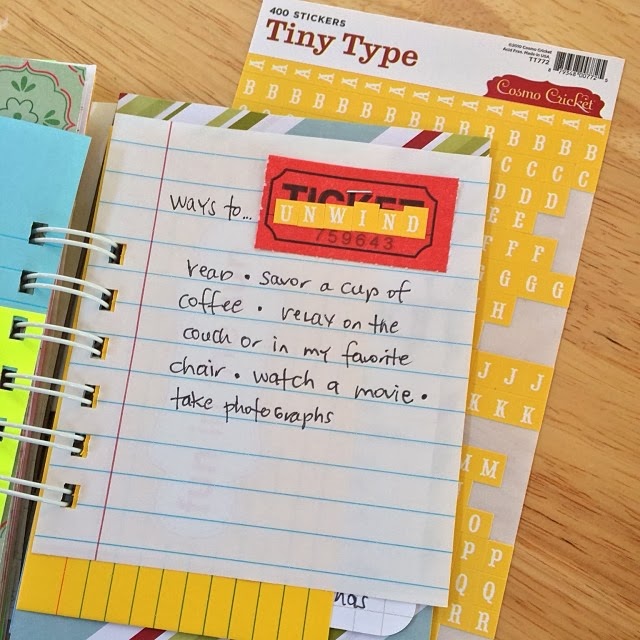 400 STICKERS
Tiny Type
©2010 Cosmo Cricket
Acid Free. Made in USA
TT772
Cosmo Cricket
ways to...
TICKET
UNWIND
759643
read • savor a cup of
coffee • relax on the
couch or in my favorite
chair • watch a movie •
take photographs